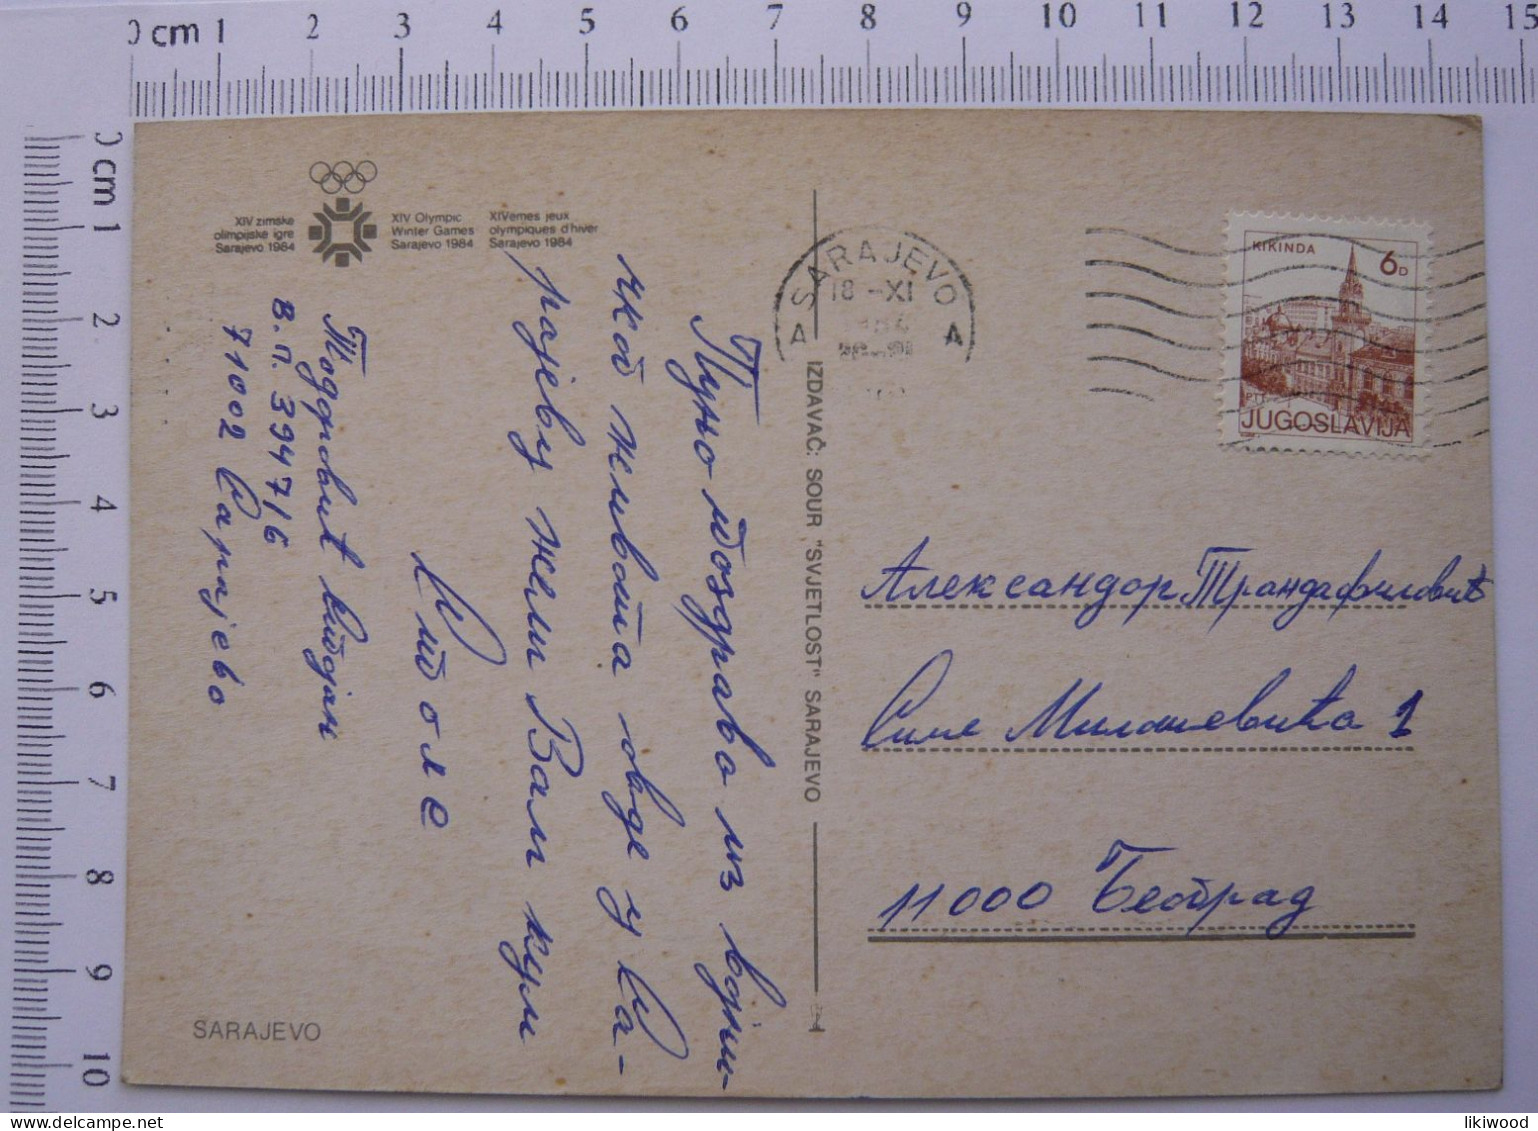 0 cm 1 2 3 4 5 6 7 8 9 10 11 12 13 14 15
0 cm 1 2 3 4 5 6 7 8 9 10
XIV zimske
olimpijske igre
Sarajevo 1984
XIV Olympic
Winter Games
Sarajevo 1984
XIVemes jeux
olympiques d'hiver
Sarajevo 1984
Пуно поздрава из војни-
чког живота овде у Са-
рајеву жели Вам кум
Столе
Тодоровић
В.П. 3947/6
71002 Сарајево
SARAJEVO
IZDAVAČ: SOUR "SVJETLOST" SARAJEVO
SARAJEVO
18 -XI
A A
KIKINDA 6D
PTT
JUGOSLAVIJA
Александар Трандафиловић
Симе Милошевића 1
11000 Београд
likiwood